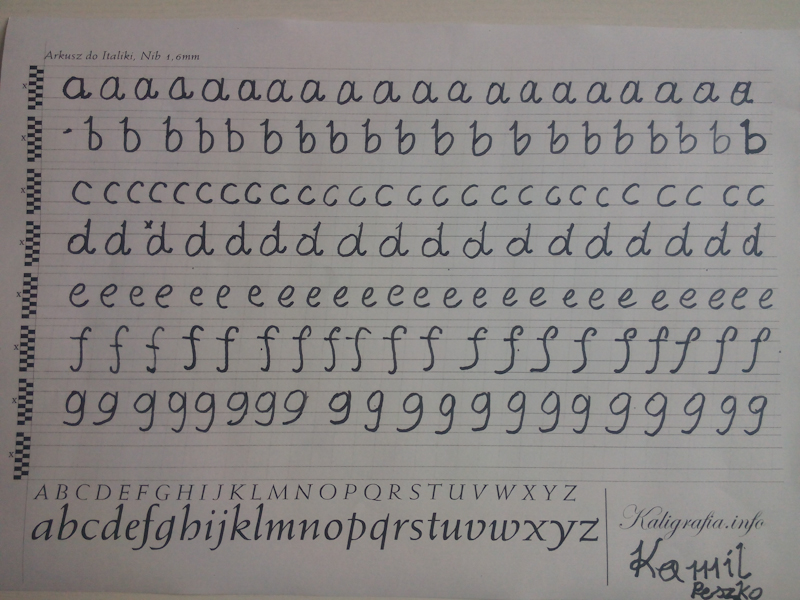 Arkusz do Italiki, Nib 1,6mm
a a a a a a a a a a a a a a a a a a a a
b b b b b b b b b b b b b b b b b b b b
c c c c c c c c c c c c c c c c c c c c c c c c c
d d d d d d d d d d d d d d d d d d
e e e e e e e e e e e e e e e e e e e e e e e e
f f f f f f f f f f f f f f f f f f f f
g g g g g g g g g g g g g g g g g g g g g
A B C D E F G H I J K L M N O P Q R S T U V W X Y Z
abcdefghijklmnopqrstuvwxyz
Kaligrafia.info
Kamil
Peszko